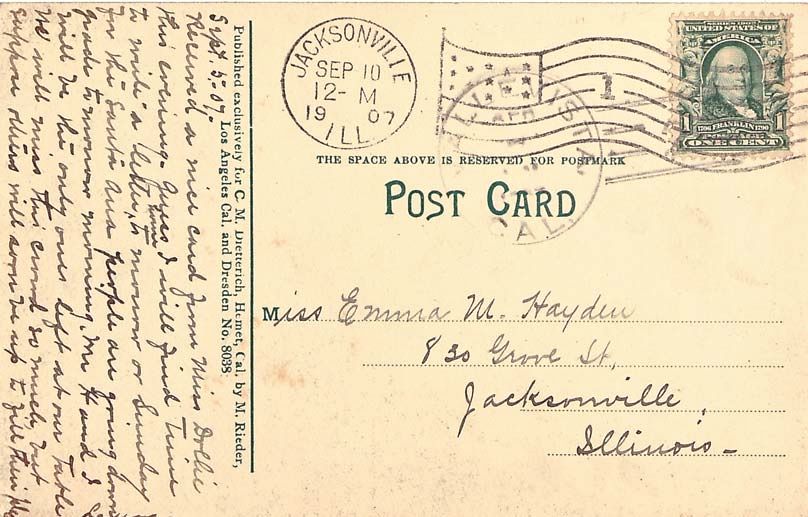 Sept. 5. 07
Received a nice card from Miss Dollie
this evening. Guess I will find time
to write a letter, to morrow or Sunday
for the Santa Ana people are going down
grade to morrow morning. Mr. Hand & I
will be the only ones left at our table
We will miss this crowd so much, but
suppose others will soon be up to fill their
Published exclusively for C. M. Dietterich, Hemet, Cal. by M. Rieder,
Los Angeles Cal. and Dresden No. 8038
JACKSONVILLE
SEP 10
12- M
19 07
ILL
1
CAL.
SERIES 1902
UNITED STATES OF
AMERICA
1706 FRANKLIN 1790
POSTAGE
1 ONE CENT 1
THE SPACE ABOVE IS RESERVED FOR POSTMARK
POST CARD
Miss Emma M. Hayden
830 Grove St,
Jacksonville,
Illinois-